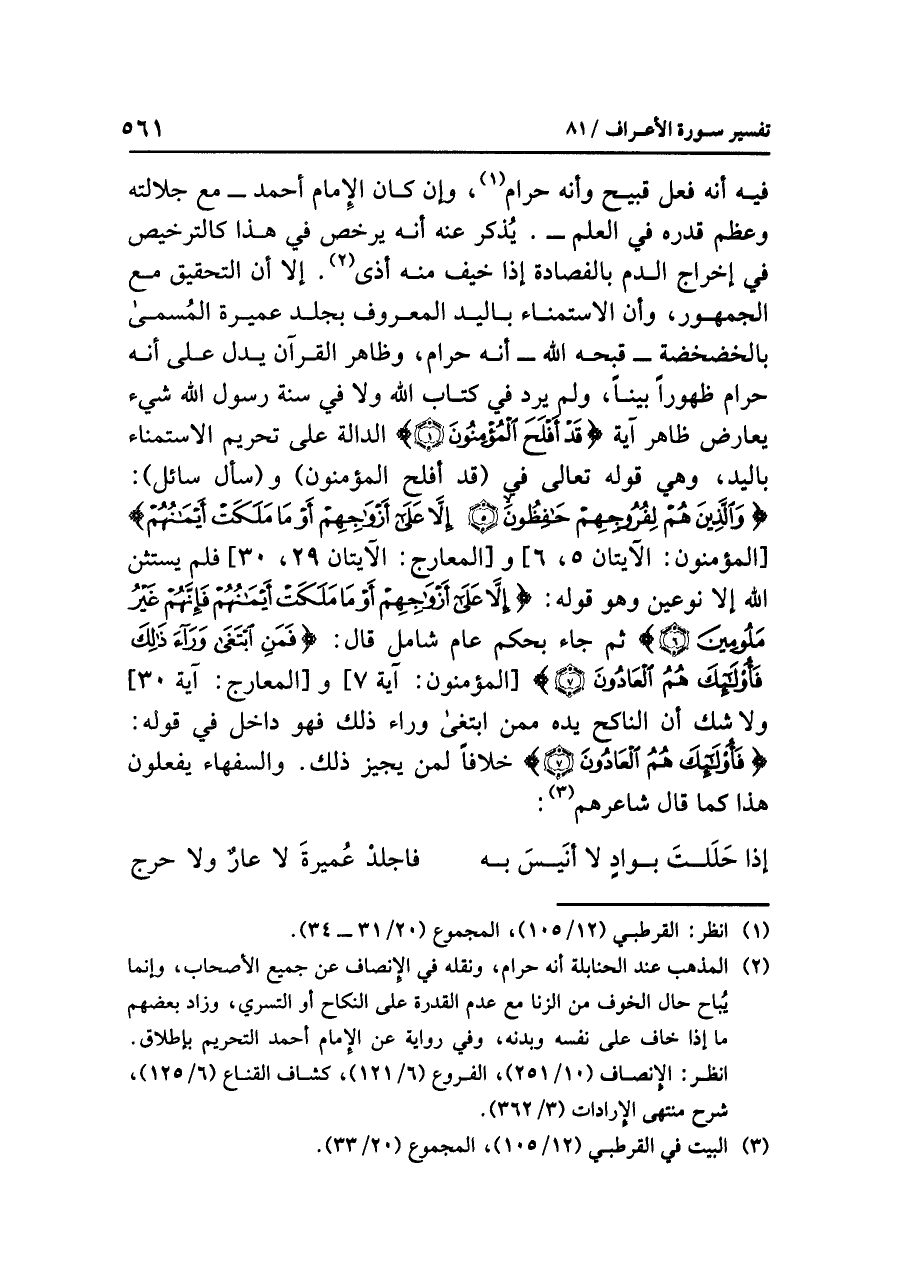 تفسير سورة الأعراف / ٨١
٥٦١
فيه أنه فعل قبيح وأنه حرام(١)، وإن كان الإمام أحمد ــ مع جلالته
وعظم قدره في العلم ــ . يُذكر عنه أنه يرخص في هذا كالترخيص
في إخراج الدم بالفصادة إذا خيف منه أذى(٢). إلا أن التحقيق مع
الجمهور، وأن الاستمناء باليد المعروف بجلد عميرة المُسمىٰ
بالخضخضة ــ قبحه الله ــ أنه حرام، وظاهر القرآن يدل على أنه
حرام ظهوراً بيناً، ولم يرد في كتاب الله ولا في سنة رسول الله شيء
يعارض ظاهر آية ﴿قَدْ أَفْلَحَ ٱلْمُؤْمِنُونَ ۝١﴾ الدالة على تحريم الاستمناء
باليد، وهي قوله تعالى في (قد أفلح المؤمنون) و(سأل سائل):
﴿وَٱلَّذِينَ هُمْ لِفُرُوجِهِمْ حَٰفِظُونَ ۝٥ إِلَّا عَلَىٰٓ أَزْوَٰجِهِمْ أَوْ مَا مَلَكَتْ أَيْمَٰنُهُمْ﴾
[المؤمنون: الآيتان ٥، ٦] و [المعارج: الآيتان ٢٩، ٣٠] فلم يستثن
الله إلا نوعين وهو قوله: ﴿إِلَّا عَلَىٰٓ أَزْوَٰجِهِمْ أَوْ مَا مَلَكَتْ أَيْمَٰنُهُمْ فَإِنَّهُمْ غَيْرُ
مَلُومِينَ ۝٦﴾ ثم جاء بحكم عام شامل قال: ﴿فَمَنِ ٱبْتَغَىٰ وَرَآءَ ذَٰلِكَ
فَأُو۟لَٰٓئِكَ هُمُ ٱلْعَادُونَ ۝٧﴾ [المؤمنون: آية ٧] و [المعارج: آية ٣٠]
ولا شك أن الناكح يده ممن ابتغىٰ وراء ذلك فهو داخل في قوله:
﴿فَأُو۟لَٰٓئِكَ هُمُ ٱلْعَادُونَ ۝٧﴾ خلافاً لمن يجيز ذلك. والسفهاء يفعلون
هذا كما قال شاعرهم(٣):
إذا حَلَلتَ بوادٍ لا أنَيسَ به فاجلدْ عُميرةَ لا عارٌ ولا حرج
(١) انظر: القرطبي (١٢/ ١٠٥)، المجموع (٢٠/ ٣١ ــ ٣٤).
(٢) المذهب عند الحنابلة أنه حرام، ونقله في الإنصاف عن جميع الأصحاب، وإنما
يُباح حال الخوف من الزنا مع عدم القدرة على النكاح أو التسري، وزاد بعضهم
ما إذا خاف على نفسه وبدنه، وفي رواية عن الإمام أحمد التحريم بإطلاق.
انظر: الإنصاف (١٠/ ٢٥١)، الفروع (٦/ ١٢١)، كشاف القناع (٦/ ١٢٥)،
شرح منتهى الإرادات (٣/ ٣٦٢).
(٣) البيت في القرطبي (١٢/ ١٠٥)، المجموع (٢٠/ ٣٣).